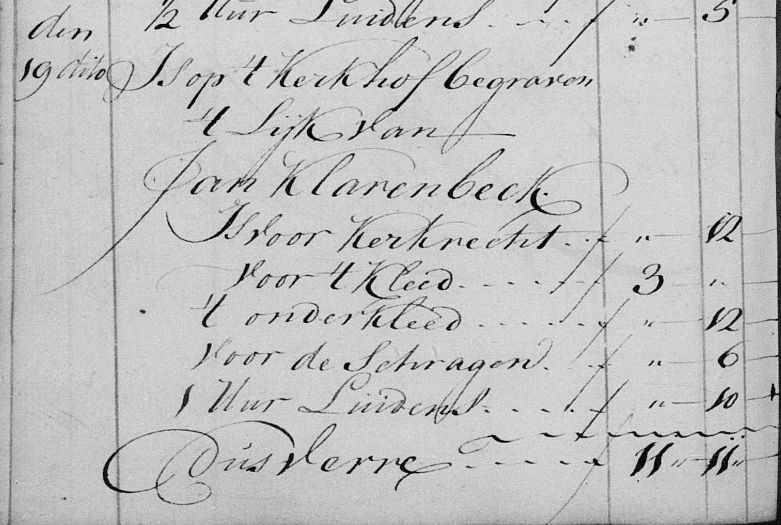 ½ Uur Luidens . . . . ƒ " — 5 —
den
19 dito Is op 't Kerkhof begraven
't Lijk van
Jan Klarenbeek
Is voor Kerkrecht . . ƒ " — 12 —
voor 't Kleed . . . . . ƒ 3 — " —
't onderkleed . . . . . ƒ " — 12 —
voor de Schragen . . ƒ " — 6 —
1 Uur Luidens . . . . ƒ " — 10 —
Dus verre . . . . ƒ 11 " — 11 "